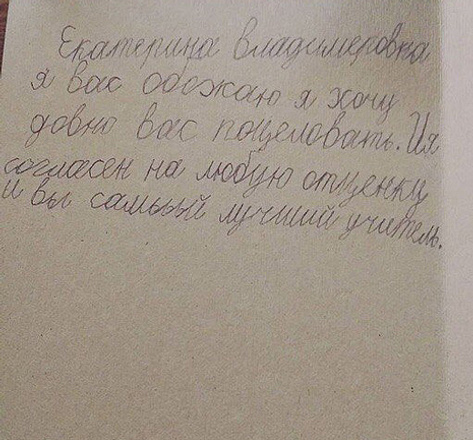 Екатерина владимеровна
я вас обожаю я хочу
довно вас поцеловать. И я
согласен на любую отценку
и вы самый лучший учитель.